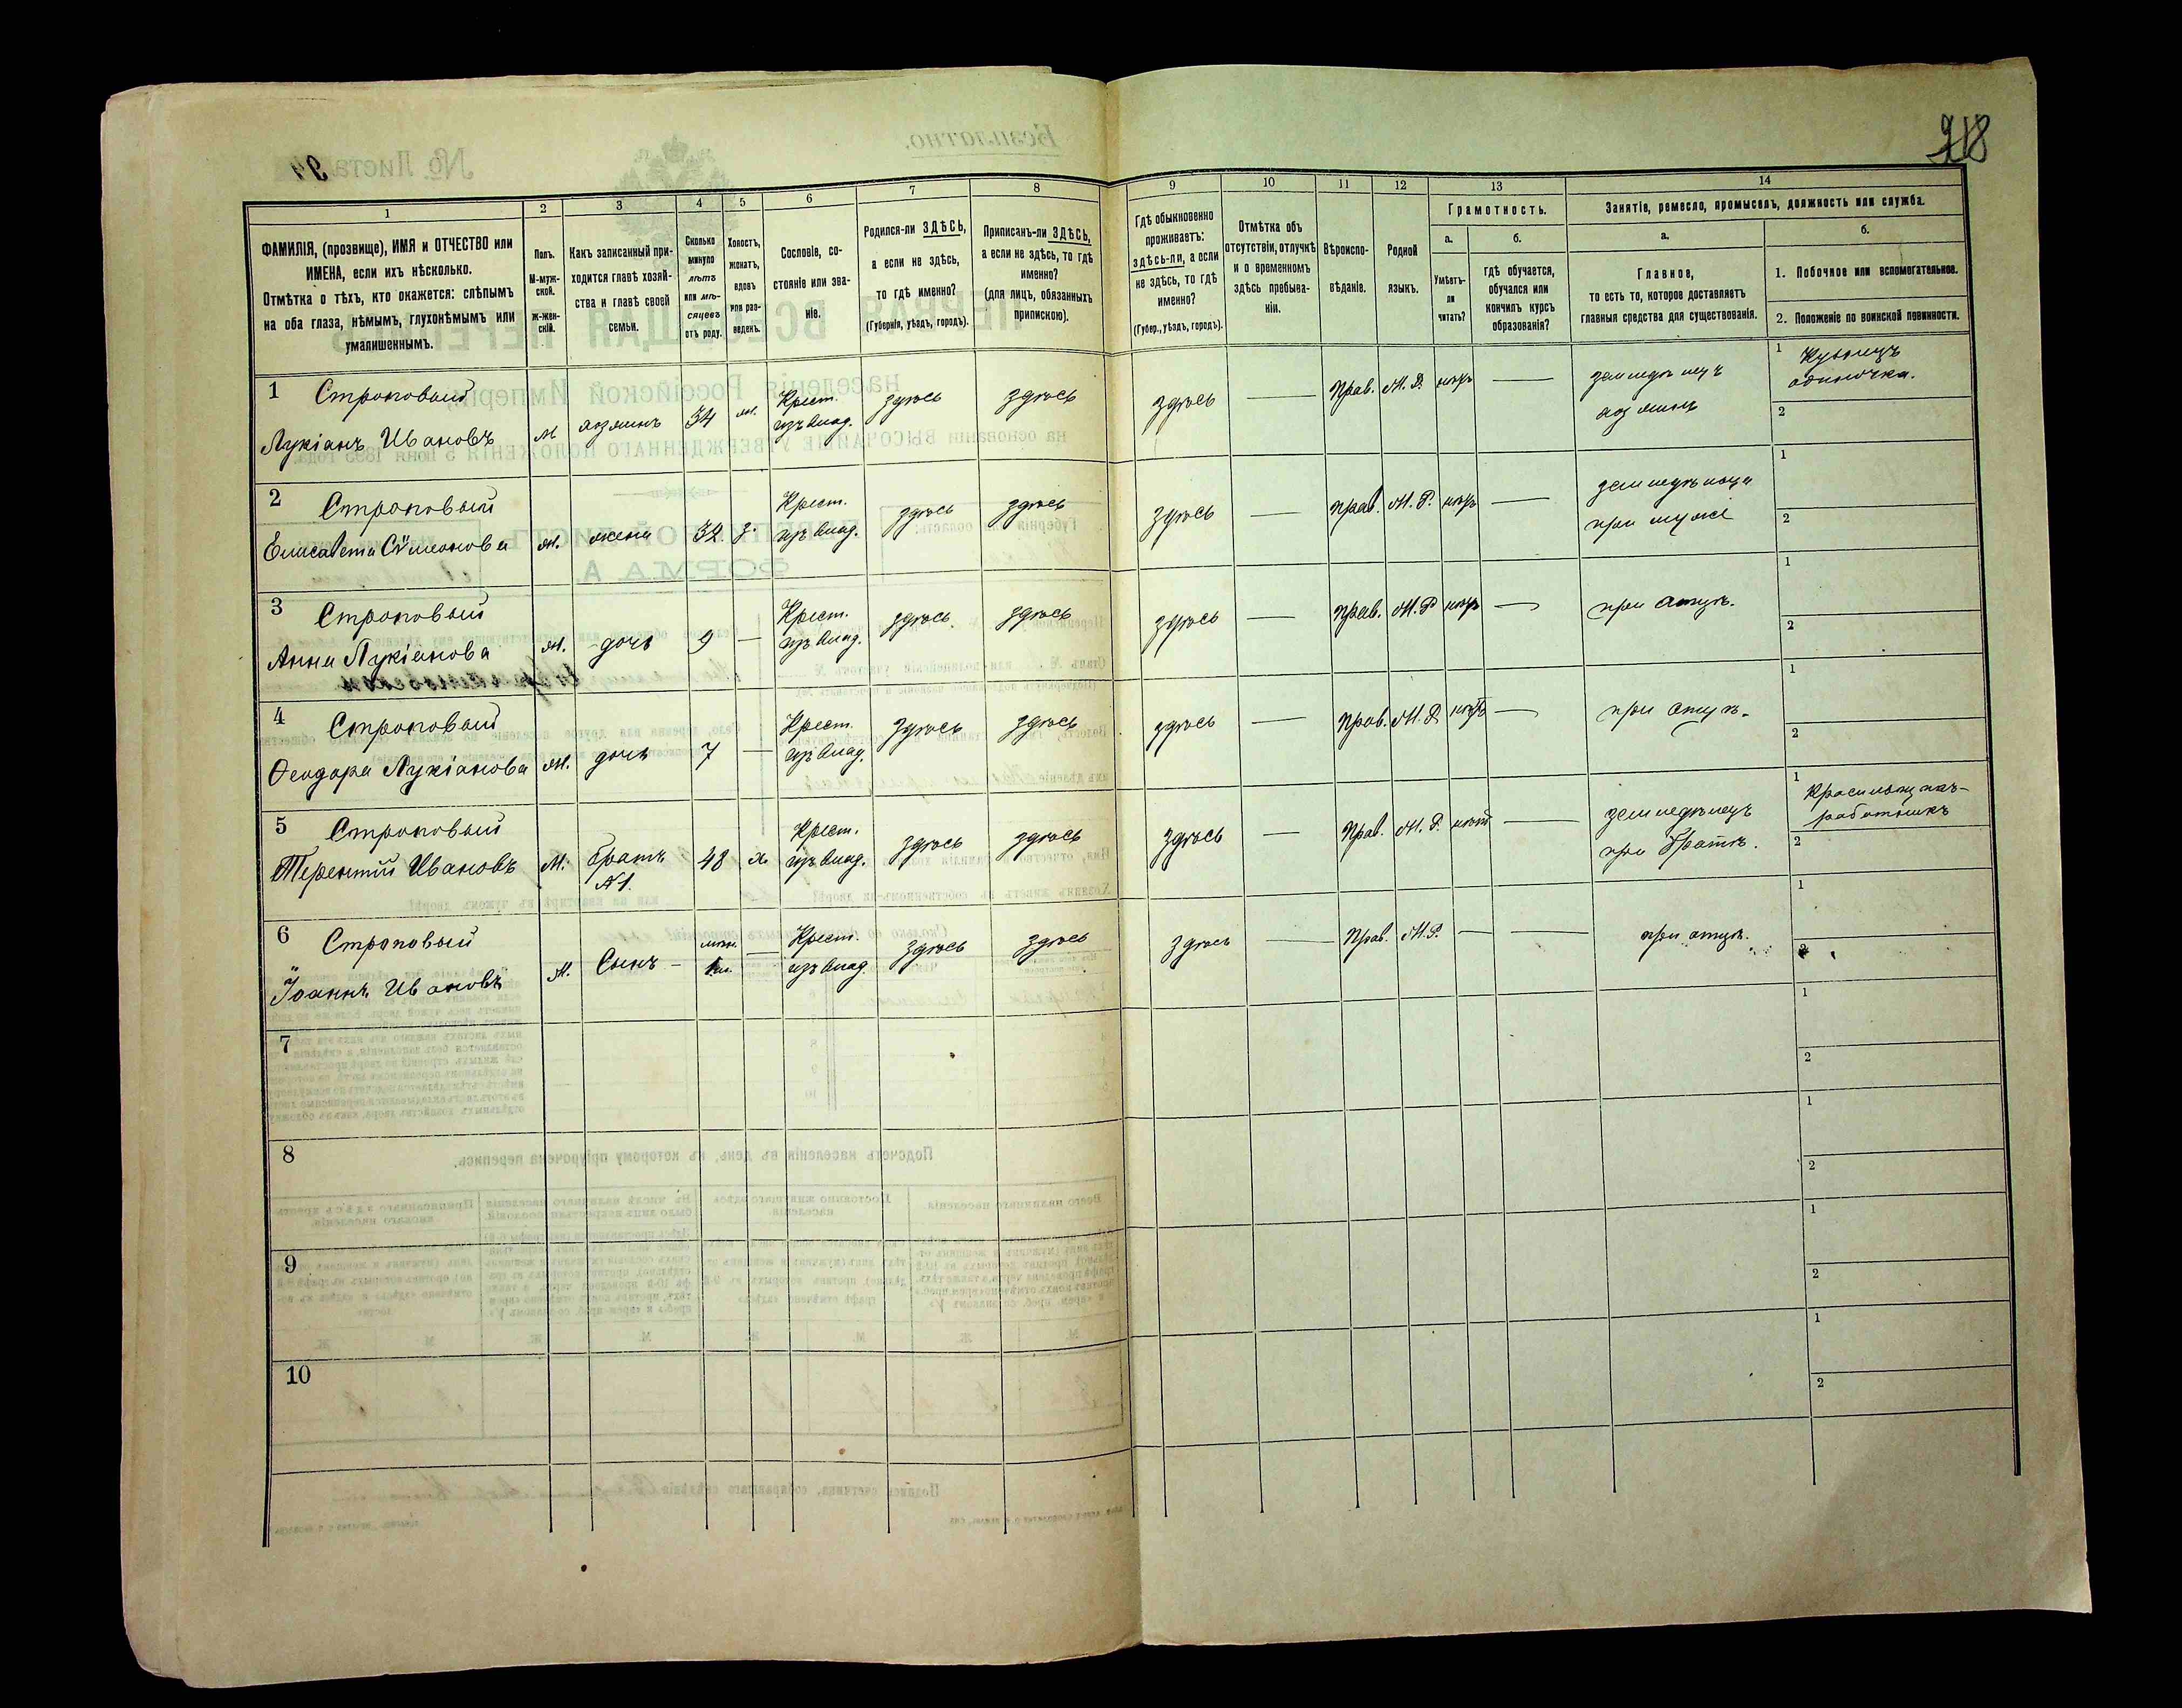 218
1
2
3
4
5
6
7
8
9
10
11
12
13
14
ФАМИЛІЯ, (прозвище), ИМЯ и ОТЧЕСТВО или
ИМЕНА, если ихъ нѣсколько.
Отмѣтка о тѣхъ, кто окажется: слѣпымъ
на оба глаза, нѣмымъ, глухонѣмымъ или
умалишеннымъ.
Полъ.
М-муж-
ской.
ж-жен-
скій.
Какъ записанный при-
ходится главѣ хозяй-
ства и главѣ своей
семьи.
Сколько
минуло
лѣтъ
или мѣ-
сяцевъ
отъ роду.
Холостъ,
женатъ,
вдовъ
или раз-
веденъ.
Сословіе, со-
стояніе или зва-
ніе.
Родился-ли ЗДѢСЬ,
а если не здѣсь,
то гдѣ именно?
(Губернія, уѣздъ, городъ).
Приписанъ-ли ЗДѢСЬ,
а если не здѣсь, то гдѣ
именно?
(для лицъ, обязанныхъ
припискою).
Гдѣ обыкновенно
проживаетъ:
здѣсь-ли, а если
не здѣсь, то гдѣ
именно?
(Губер., уѣздъ, городъ).
Отмѣтка объ
отсутствіи, отлучкѣ
и о временномъ
здѣсь пребыва-
ніи.
Вѣроиспо-
вѣданіе.
Родной
языкъ.
Грамотность.
а.
Умѣетъ-
ли
читать?
б.
гдѣ обучается,
обучался или
кончилъ курсъ
образованія?
Занятіе, ремесло, промыселъ, должность или служба.
а.
Главное,
то есть то, которое доставляетъ
главныя средства для существованія.
б.
1. Побочное или вспомогательное.
2. Положеніе по воинской повинности.
1 Строповый
Лукіанъ Ивановъ
м
хозяинъ
34
ж.
Крест.
изъ влад.
здѣсь
здѣсь
здѣсь
—
Прав.
М.Р.
нѣтъ
—
земледѣлецъ
хозяинъ
1 Кузнецъ
одиночка.
2
2 Строповый
Елисавета Сѵмеонова
ж.
жена
32
з.
Крест.
изъ влад.
здѣсь
здѣсь
здѣсь
—
Прав.
М.Р.
нѣтъ
—
при мужѣ
1
2
3 Строповый
Анна Лукіанова
ж.
дочь
9
—
Крест.
изъ влад.
здѣсь
здѣсь
здѣсь
—
Прав.
М.Р.
нѣтъ
—
при отцѣ.
1
2
4 Строповый
Ѳеодора Лукіанова
ж.
дочь
7
—
Крест.
изъ влад.
здѣсь
здѣсь
здѣсь
—
Прав.
М.Р.
нѣтъ
—
при отцѣ.
1
2
5 Строповый
Терентій Ивановъ
М.
братъ
№1.
48
х.
Крест.
изъ влад.
здѣсь
здѣсь
здѣсь
—
Прав.
М.Р.
нѣтъ
—
земледѣлецъ
при братѣ.
1 Красильщикъ-
работникъ
2
6 Строповый
Іоаннъ Ивановъ
М.
Сынъ —
—
Крест.
изъ влад.
здѣсь
здѣсь
здѣсь
—
Прав.
М.Р.
—
—
при отцѣ.
1
2
7
1
2
8
1
2
9
1
2
10
1
2